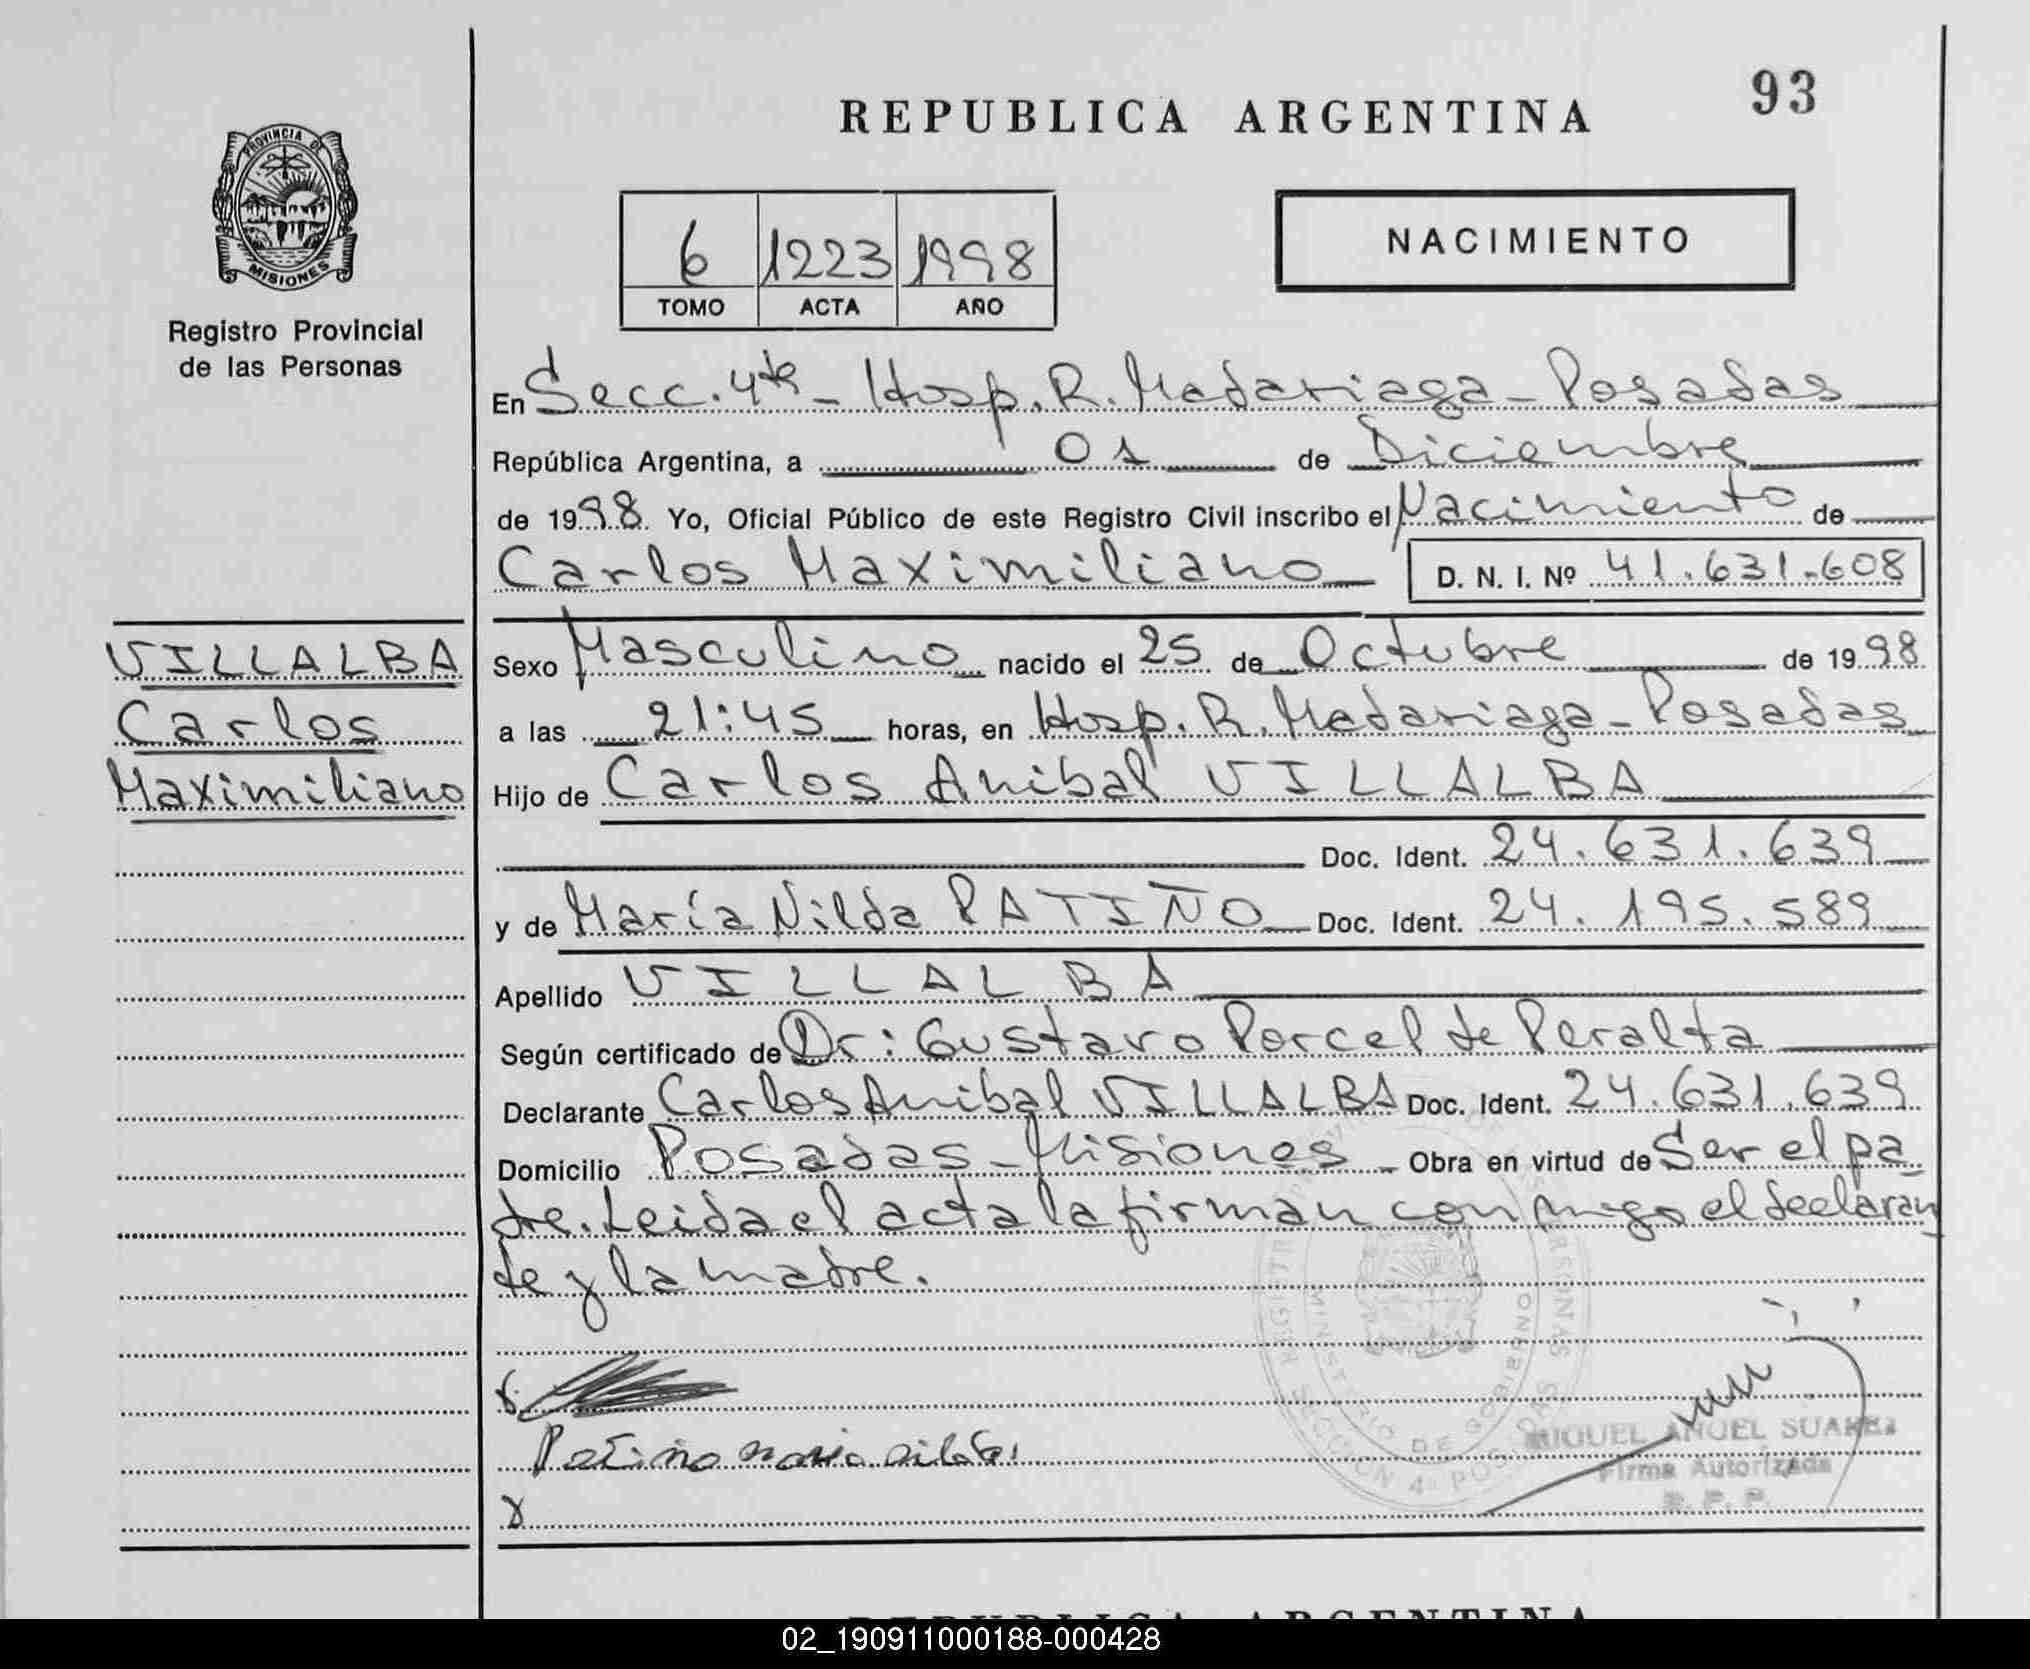 93
REPUBLICA ARGENTINA
PROVINCIA DE
MISIONES
Registro Provincial
de las Personas
6 1223 1998
TOMO ACTA AÑO
NACIMIENTO
En Secc. 4ta - Hosp. R. Madariaga - Posadas
República Argentina, a 01 de Diciembre
de 1998. Yo, Oficial Público de este Registro Civil inscribo el Nacimiento de
Carlos Maximiliano D. N. I. Nº 41.631.608
VILLALBA
Carlos
Maximiliano
Sexo Masculino nacido el 25 de Octubre de 1998
a las 21:45 horas, en Hosp. R. Madariaga - Posadas
Hijo de Carlos Anibal VILLALBA
Doc. Ident. 24.631.639
y de María Nilda PATIÑO Doc. Ident. 24.195.589
Apellido VILLALBA
Según certificado de Dr: Gustavo Porcel de Peralta
Declarante Carlos Anibal VILLALBA Doc. Ident. 24.631.639
Domicilio Posadas - Misiones - Obra en virtud de Ser el pa
dre. Leida el acta la firman conmigo el declaran
te y la madre.
Patiño maria nilda
MIGUEL ANGEL SUAREZ
Firma Autorizada
R. P. P.
MINISTERIO DE GOBIERNO
SECCION 4ª POSADAS
REPUBLICA ARGENTINA
02_190911000188-000428